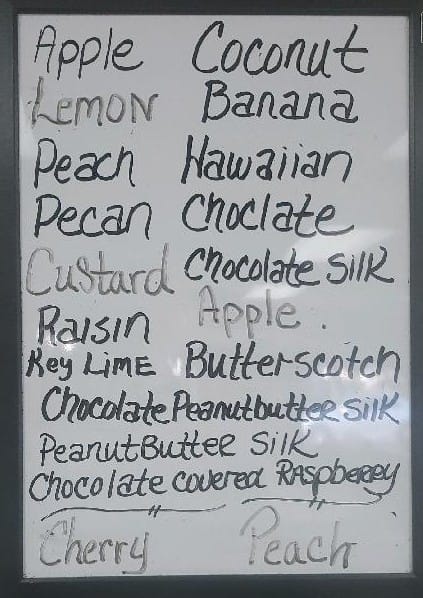 Apple Coconut
Lemon Banana
Peach Hawaiian
Pecan Choclate
Custard Chocolate Silk
Raisin Apple.
Key Lime Butterscotch
Chocolate Peanutbutter Silk
Peanut Butter Silk
Chocolate covered Raspberry
Cherry Peach